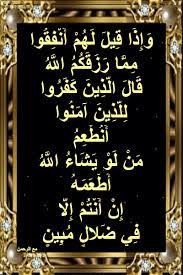 وَإِذَا قِيلَ لَهُمْ أَنْفِقُوا
مِمَّا رَزَقَكُمُ اللَّهُ
قَالَ الَّذِينَ كَفَرُوا
لِلَّذِينَ آمَنُوا
أَنُطْعِمُ
مَنْ لَوْ يَشَاءُ اللَّهُ
أَطْعَمَهُ
إِنْ أَنْتُمْ إِلَّا
فِي ضَلَالٍ مُبِينٍ
مع الرحمن